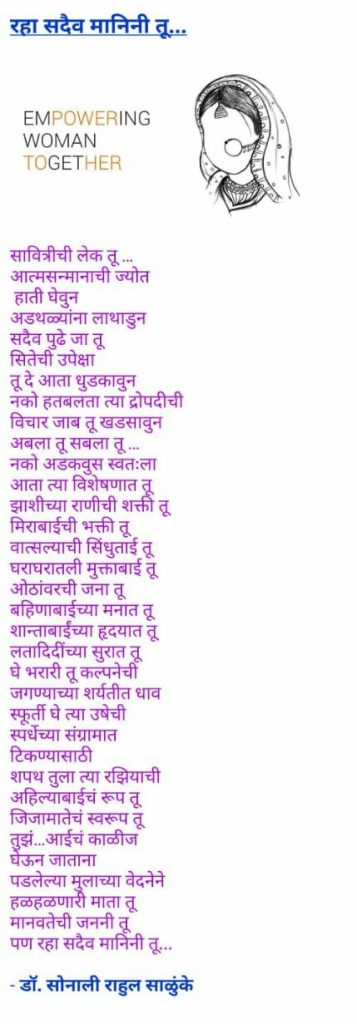 रहा सदैव मानिनी तू...
EMPOWERING
WOMAN
TOGETHER
सावित्रीची लेक तू ...
आत्मसन्मानाची ज्योत
हाती घेवुन
अडथळ्यांना लाथाडुन
सदैव पुढे जा तू
सितेची उपेक्षा
तू दे आता धुडकावुन
नको हतबलता त्या द्रोपदीची
विचार जाब तू खडसावुन
अबला तू सबला तू ...
नको अडकवुस स्वतःला
आता त्या विशेषणात तू
झाशीच्या राणीची शक्ती तू
मिराबाईची भक्ती तू
वात्सल्याची सिंधुताई तू
घराघरातली मुक्ताबाई तू
ओठांवरची जना तू
बहिणाबाईच्या मनात तू
शान्ताबाईंच्या हृदयात तू
लतादिदींच्या सुरात तू
घे भरारी तू कल्पनेची
जगण्याच्या शर्यतीत धाव
स्फूर्ती घे त्या उषेची
स्पर्धेच्या संग्रामात
टिकण्यासाठी
शपथ तुला त्या रझियाची
अहिल्याबाईचं रूप तू
जिजामातेचं स्वरूप तू
तुझं...आईचं काळीज
घेऊन जाताना
पडलेल्या मुलाच्या वेदनेने
हळहळणारी माता तू
मानवतेची जननी तू
पण रहा सदैव मानिनी तू...
- डॉ. सोनाली राहुल साळुंके